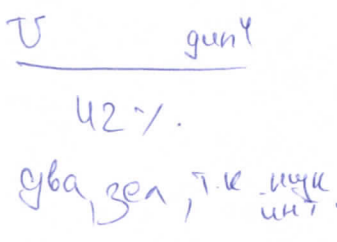 U дип4
42%.
два, зел, т.к нук
инт.